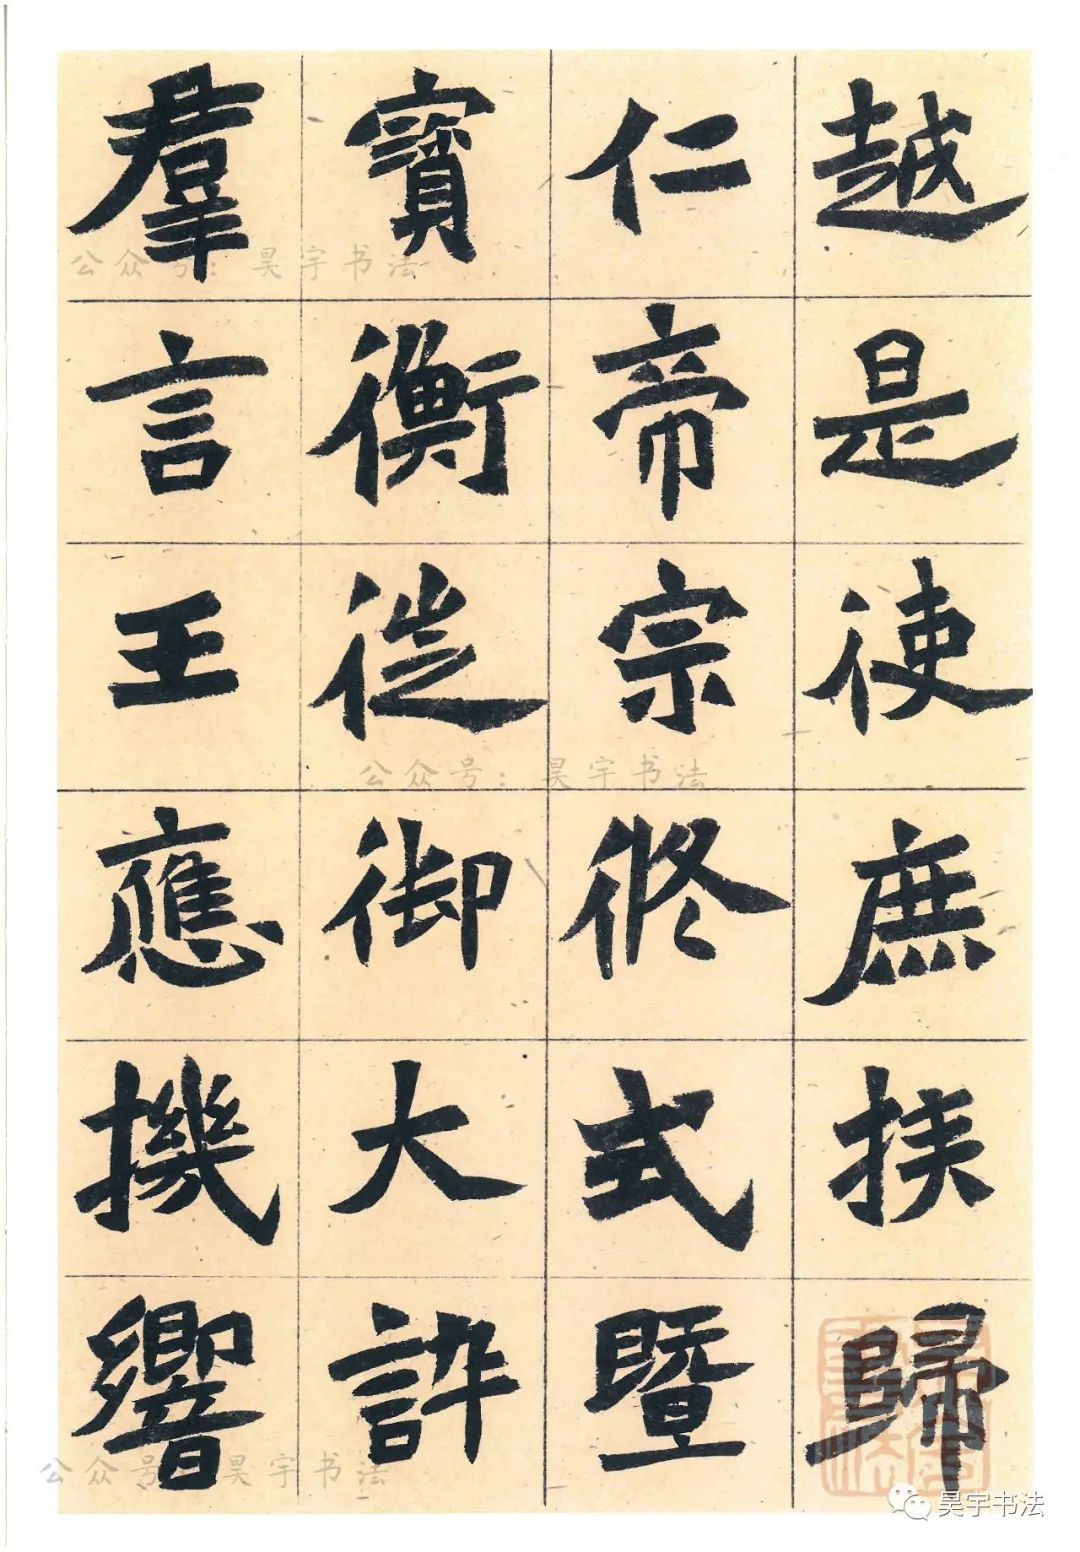 越是使庶族歸
仁帝宗修式暨
寶衡從御大
羣言王應機響
公众号：昊宇书法
公众号：昊宇书法
公众号 昊宇书法
昊宇书法